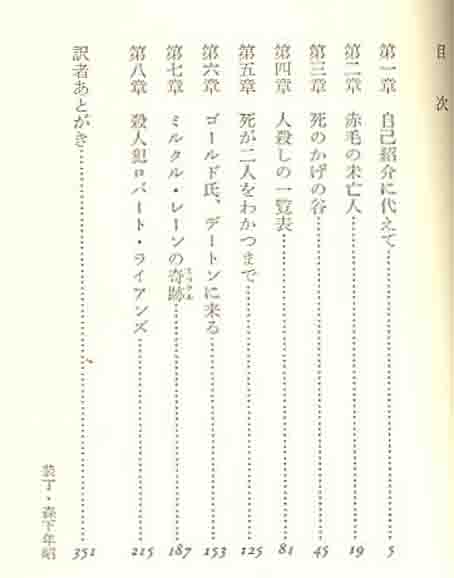 目次
第一章　自己紹介に代えて……5
第二章　赤毛の未亡人……19
第三章　死のかげの谷……45
第四章　人殺しの一覧表……81
第五章　死が二人をわかつまで……125
第六章　ゴールド氏、デートンに来る……153
第七章　ミルクル・レーンの奇跡……187
第八章　殺人犯ロバート・ライアンズ……215
訳者あとがき……351
装丁・森下年昭